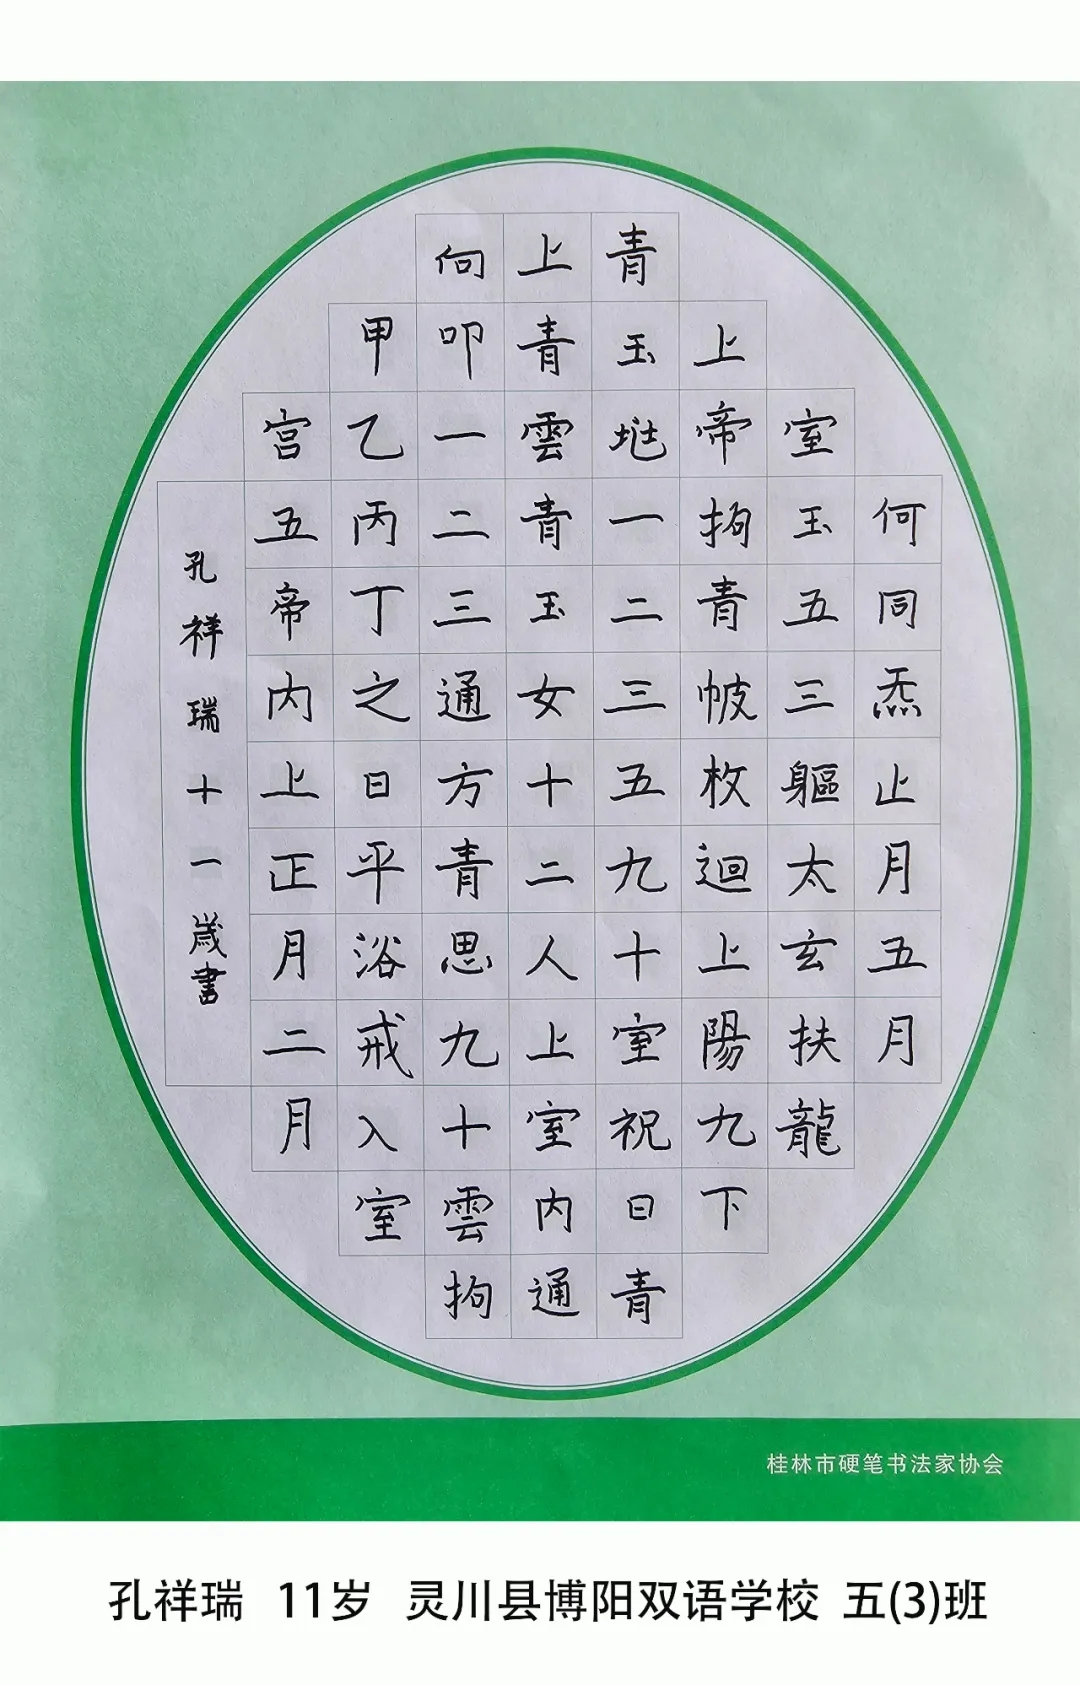 何同炁止月五月
室玉五三軀太玄扶龍
上帝拘青帔枚迴上陽九下
青玉一二三五九十室祝日青
上青雲青玉女十二人上室内通
向叩一二三通方青思九十雲拘
甲乙丙丁之日平浴戒入室
宫五帝内上正月二月
孔祥瑞十一歲書
桂林市硬笔书法家协会
孔祥瑞 11岁 灵川县博阳双语学校 五(3)班